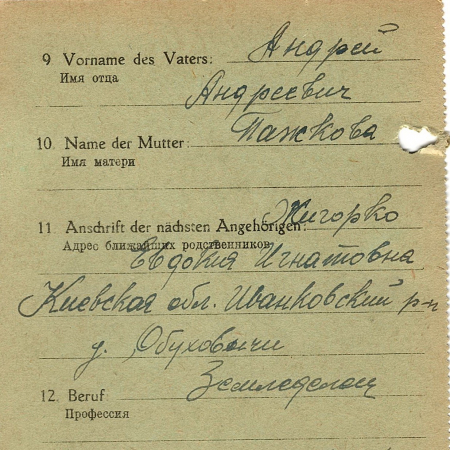 9. Vorname des Vaters: Андрей
Имя отца
Андреевич
10. Name der Mutter: Пажкова
Имя матери
11. Anschrift der nächsten Angehörigen: Жигорко
Адрес ближайших родственников
Евдокия Игнатовна
Киевская обл. Иванковский р-н
д. Обуховичи
12. Beruf: Земледелец
Профессия